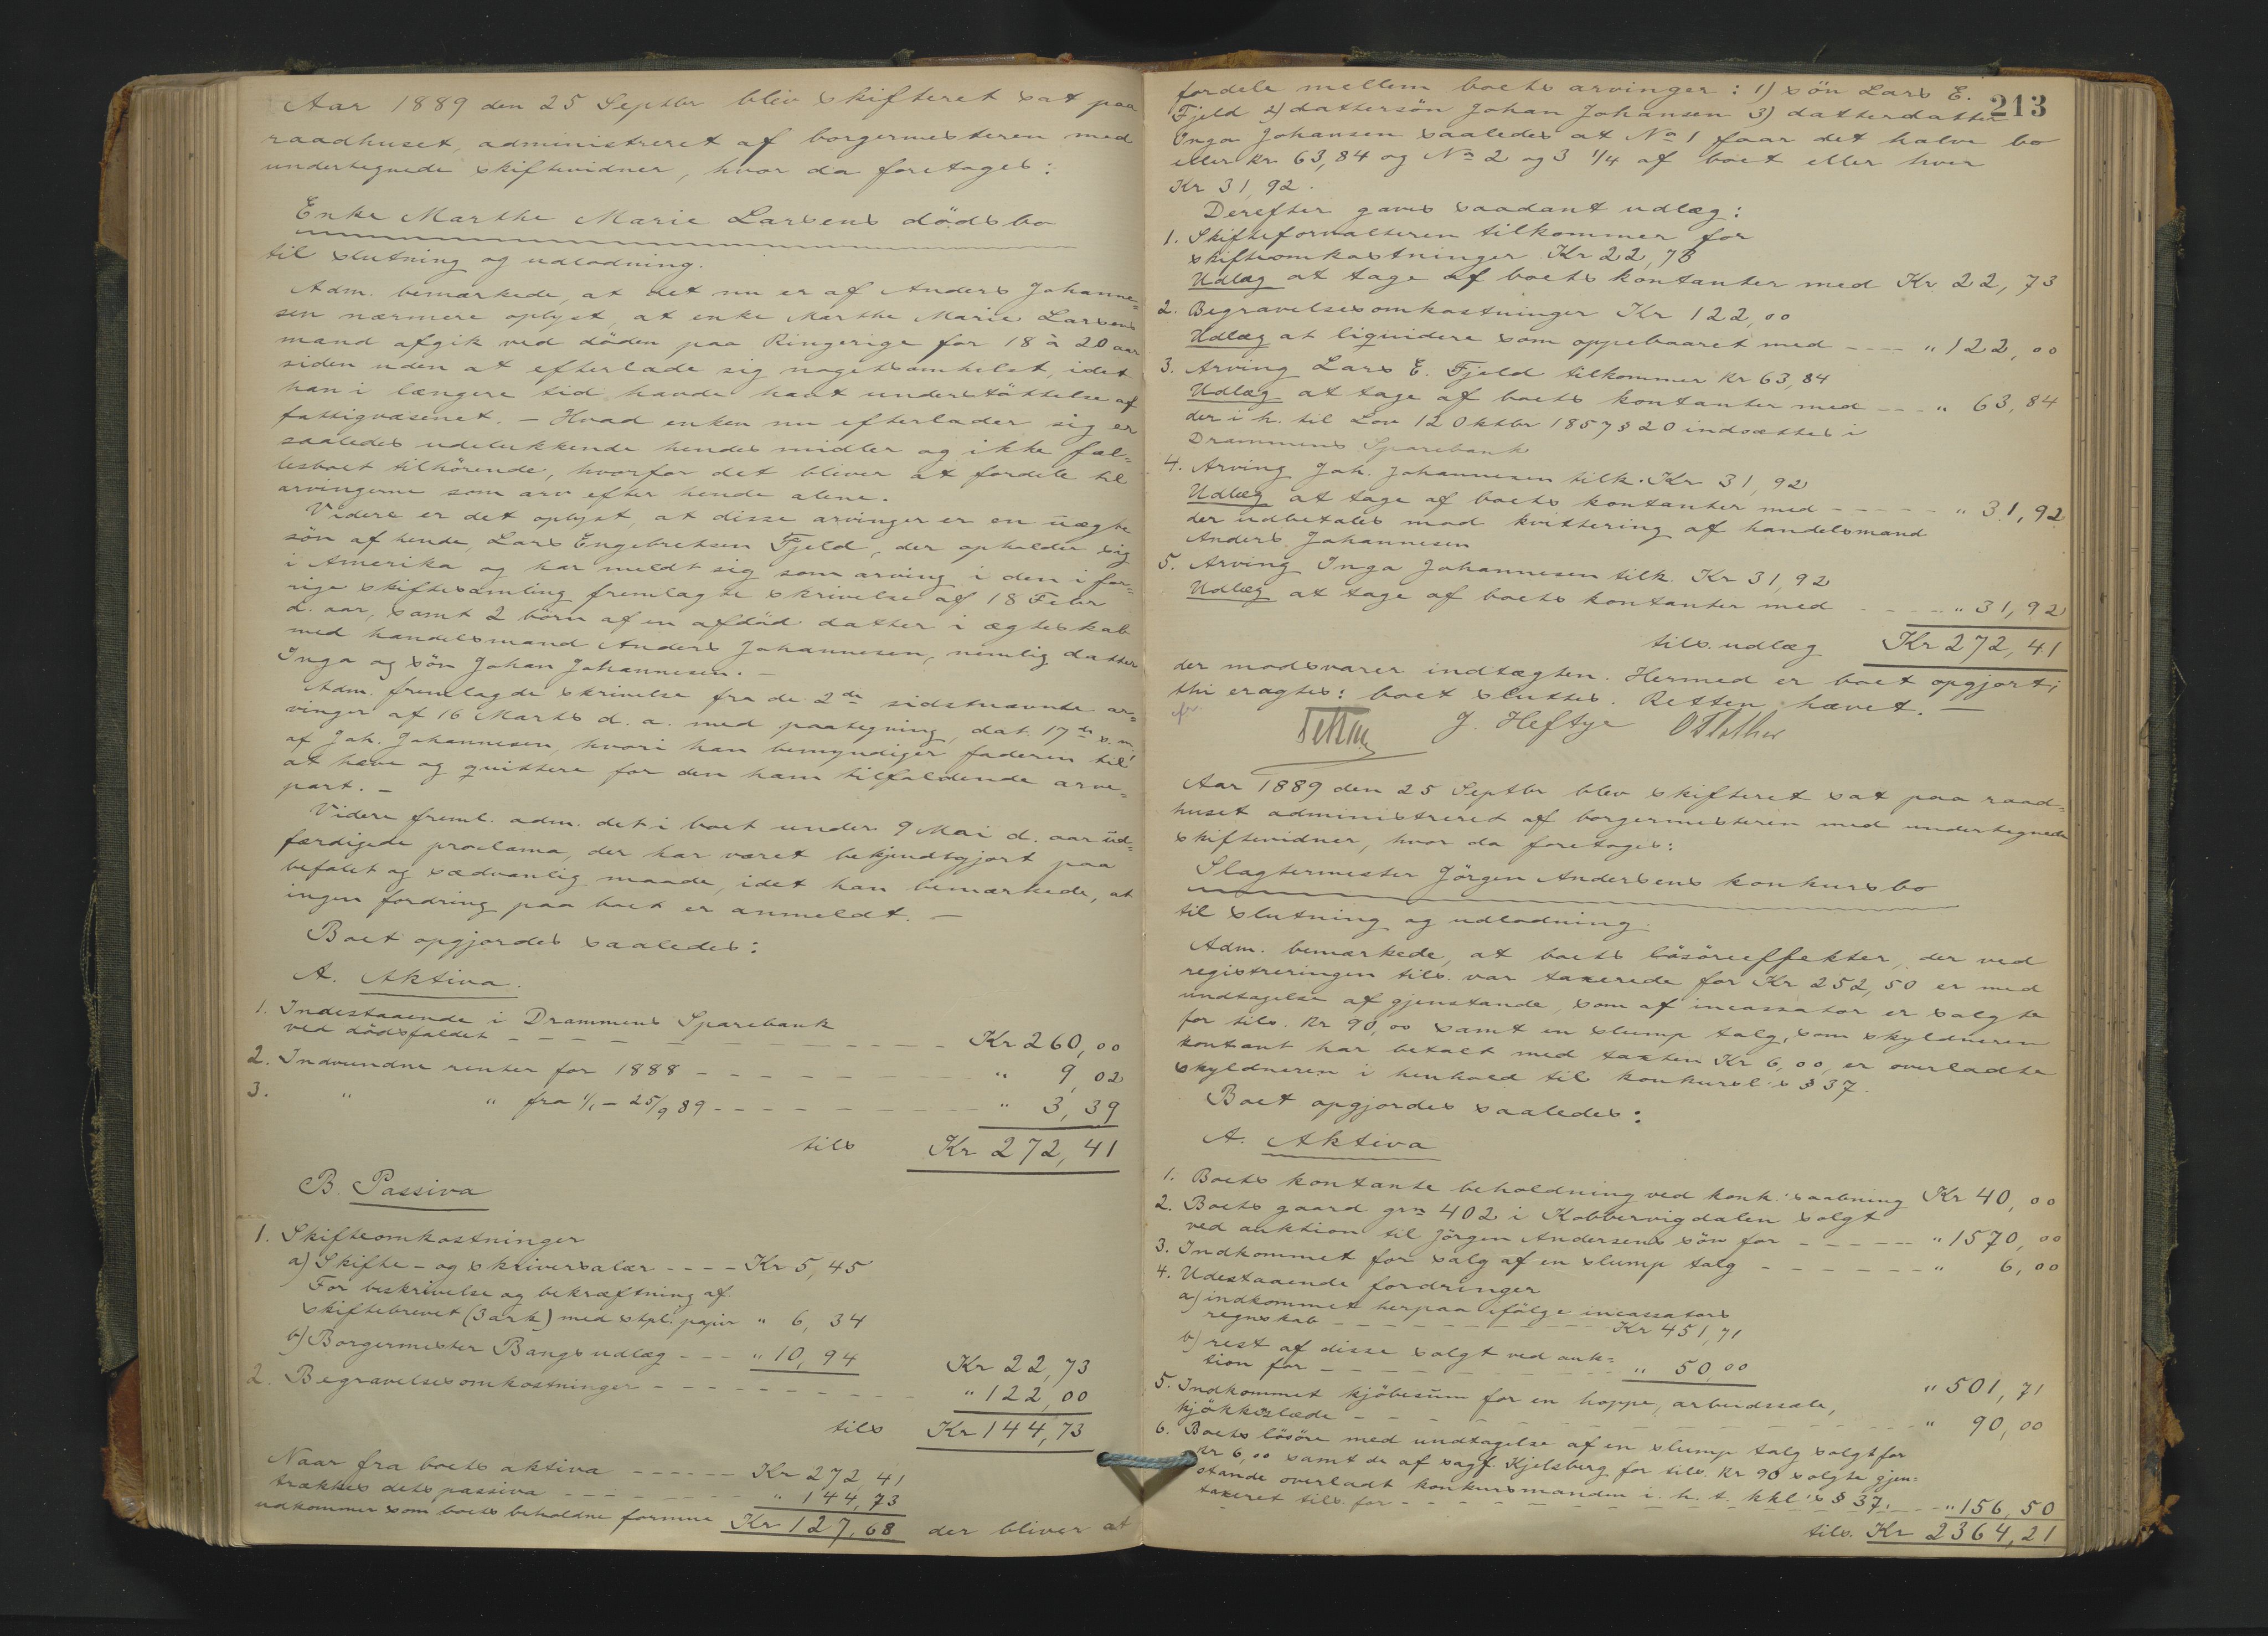 Aar 1889 den 25 Septbr blev skifteret sat paa
raadhuset, administreret af borgermesteren med
undertegnede skiftevidner, hvor da foretoges:
Enke Marthe Marie Larsens dödsbo
til slutning og udlodning.
Adm. bemærkede, at det nu er af Anders Johanne=
sen nærmere oplyst, at enke Marthe Marie Larsens
mand afgik ved döden paa Ringerige for 18 à 20 aar
siden uden at efterlade sig nogetsomhelst, idet
han i længere tid havde havt understöttelse af
fattigvæsenet. – Hvad enken nu efterlader sig er
saaledes udelukkende hendes midler og ikke fæl=
lesboet tilhörende, hvorfor det bliver at fordele til
arvingerne som arv efter hende alene.
Videre er det oplyst, at disse arvinger er en uægte
sön af hende, Lars Engebretsen Fjeld, der opholder sig
i Amerika og har meldt sig som arving i den i for=
rige skiftesamling fremlagte skrivelse af 18 Febr
d. aar, samt 2 börn af en afdöd datter i ægteskab
med handelsmand Anders Johannesen, nemlig datter
Inga og sön Johan Johannesen. –
Adm. fremlagde skrivelse fra de 2de sidstnævnte ar=
vinger af 16 Marts d. a. med paategning, dat. 17de s. m.
af Joh. Johannesen, hvori han bemyndiger faderen til
at hæve og quittere for den ham tilfaldende arve=
part. –
Videre freml. adm. det i boet under 9 Mai d. aar ud=
færdigede proclama, der har været bekjendtgjort paa
befalet og sædvanlig maade, idet han bemærkede, at
ingen fordring paa boet er anmeldt. –
Boet opgjordes saaledes:
A. Aktiva.
1. Indestaaende i Drammens Sparebank
ved dödsfaldet – – – – Kr 260,00
2. Indvundne renter for 1888 – – – – " 9,02
3. " " fra 1/1 – 25/9 89 – – – – " 3,39
tils Kr 272,41
B. Passiva
1. Skifteomkostninger
a) Skifte- og skriversalær – – – – Kr 5,45
For beskrivelse og bekræftning af
skiftebrevet (3 ark) med stpl. papir " 6,34
b) Borgermester Bangs udlæg – – – " 10,94 Kr 22,73
2. Begravelsesomkostninger – – – – " 122,00
tils Kr 144,73
Naar fra boets aktiva – – – – Kr 272,41
trækkes dets passiva – – – – " 144,73
udkommer som boets beholdne formue Kr 127,68 der bliver at
213
fordele mellem boets arvinger: 1) sön Lars E.
Fjeld 2) dattersön Johan Johansen 3) datterdatter
Inga Johansen saaledes at No 1 faar det halve bo
eller Kr. 63,84 og No 2 og 3 1/4 af boet eller hver
Kr 31,92.
Derefter gaves saadant udlæg:
1. Skifteforvalteren tilkommer for
skifteomkostninger Kr 22,73
Udlæg at tage af boets kontanter med Kr 22,73
2. Begravelsesomkostninger Kr 122,00
Udlæg at liquidere som oppebaaret med – – – – " 122,00
3. Arving Lars E. Fjeld tilkommer Kr 63,84
Udlæg at tage af boets kontanter med – – – " 63,84
der i h. til Lov 12 Oktbr 1857 § 20 indsættes i
Drammens Sparebank
4. Arving Joh. Johannesen tilk. Kr 31,92
Udlæg at tage af boets kontanter med – – – – – " 31,92
der udbetales mod kvittering af handelsmand
Anders Johannesen
5. Arving Inga Johannesen tilk. Kr 31,92
Udlæg at tage af boets kontanter med – – – – " 31,92
tils. udlæg Kr 272,41
der modsvarer indtægten. Hermed er boet opgjort;
thi eragtes: boet sluttes. Retten hævet. –
J. Heftye
Aar 1889 den 25 Septbr blev skifteret sat paa raad=
huset administreret af borgermesteren med undertegnede
skiftevidner, hvor da foretoges:
Slagtermester Jörgen Andersens konkursbo
til slutning og udlodning.
Adm. bemærkede, at boets lösöreeffekter, der ved
registreringen tils. var taxerede for Kr 252,50 er med
undtagelse af gjenstande, som af incassator er solgte
for tils. Kr 90,00 samt en slump talg, som skyldneren
kontant har betalt med taxten Kr 6,00, er overladte
skyldneren i henhold til konkursl's § 37.
Boet opgjordes saaledes:
A. Aktiva
1. Boets kontante beholdning ved konk. saabning Kr 40,00
2. Boets gaard grn 402 i Kobbervigdalen solgt
ved auktion til Jörgen Andersens sön for – – – – – " 1570,00
3. Indkommet for salg af en slump talg – – – – – – " 6,00
4. Udestaaende fordringer
a) indkommet herpaa ifölge incassators
regnskab – – – – Kr 451,71
b) rest af disse solgt ved auk=
tion for – – – – " 50,00
" 501,71
5. Indkommet kjöbesum for en hoppe, arbeidssele,
kjökkeslæde – – – – " 90,00
6. Boets lösöre med undtagelse af en slump talg solgt for
Kr 6,00 samt de af sagf. Kjelsberg for tils. Kr 90 solgte gjen=
stande overladt konkursmanden i. h. t. kkl's § 37.
taxeret tils. for – – – – " 156,50
tils. Kr 2364,21